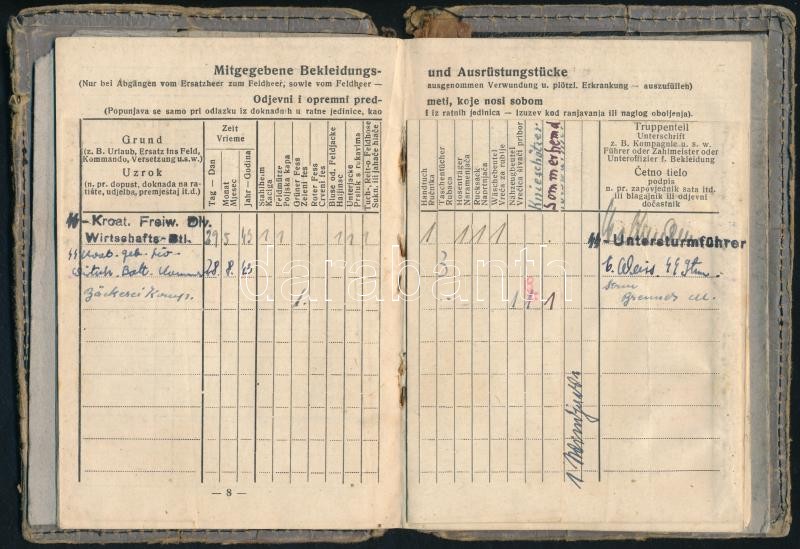 Mitgegebene Bekleidungs-
(Nur bei Abgängen vom Ersatzheer zum Feldheer, sowie vom Feldheer —
Odjevni i opremni pred-
(Popunjava se samo pri odlazku iz doknadnih u ratne jedinice, kao
Grund
(z. B. Urlaub, Ersatz ins Feld,
Kommando, Versetzung u.s.w.)
Uzrok
(n. pr. dopust, doknada na ra-
tište, udjelba, premještaj it.d.)
Zeit
Vrieme
Tag — Dan
Monat
Mjesec
Jahr — Godina
Stahlhelm
Kaciga
Feldmütze
Poljska kapa
Grüner Fess
Zeleni fes
Roter Fess
Crveni fes
Bluse od. Feldjacke
Haljinac
Unterjacke
Prsluk s rukavima
Tuch-, Reit- o Feldhose
Sukn. ili jahaće hlače
ᛋᛋ-Kroat. Freiw. Div.
Wirtschafts-Btl.
29 5 43 1 1 1 1 1
28. 8. 43
Bäckerei Komp.
1.
— 8 —
und Ausrüstungstücke
ausgenommen Verwundung u. plötzl. Erkrankung — auszufüllen)
meti, koje nosi sobom
i iz ratnih jedinica — izuzev kod ranjavanja ili naglog oboljenja).
Handtuch
Rudnika
Taschentücher
Rubaca
Hosenträger
Naramenjača
Rucksack
Naprtnjača
Wäschebeutel
Vreća za rublje
Nähzeugbeutel
Vrećica šivaći pribor
Knieschützer
Sommerhemd
Truppenteil
Unterschrift
z. B. Kompagnie u. s. w.
Führer oder Zahlmeister oder
Unteroffizier f. Bekleidung
Četno tielo
podpis
n. pr. zapovjednik sata itd.
ili blagajnik ili odjevni
dočastnik
1 1 1 1
ᛋᛋ-Untersturmführer
3
1 1 1
darabanth